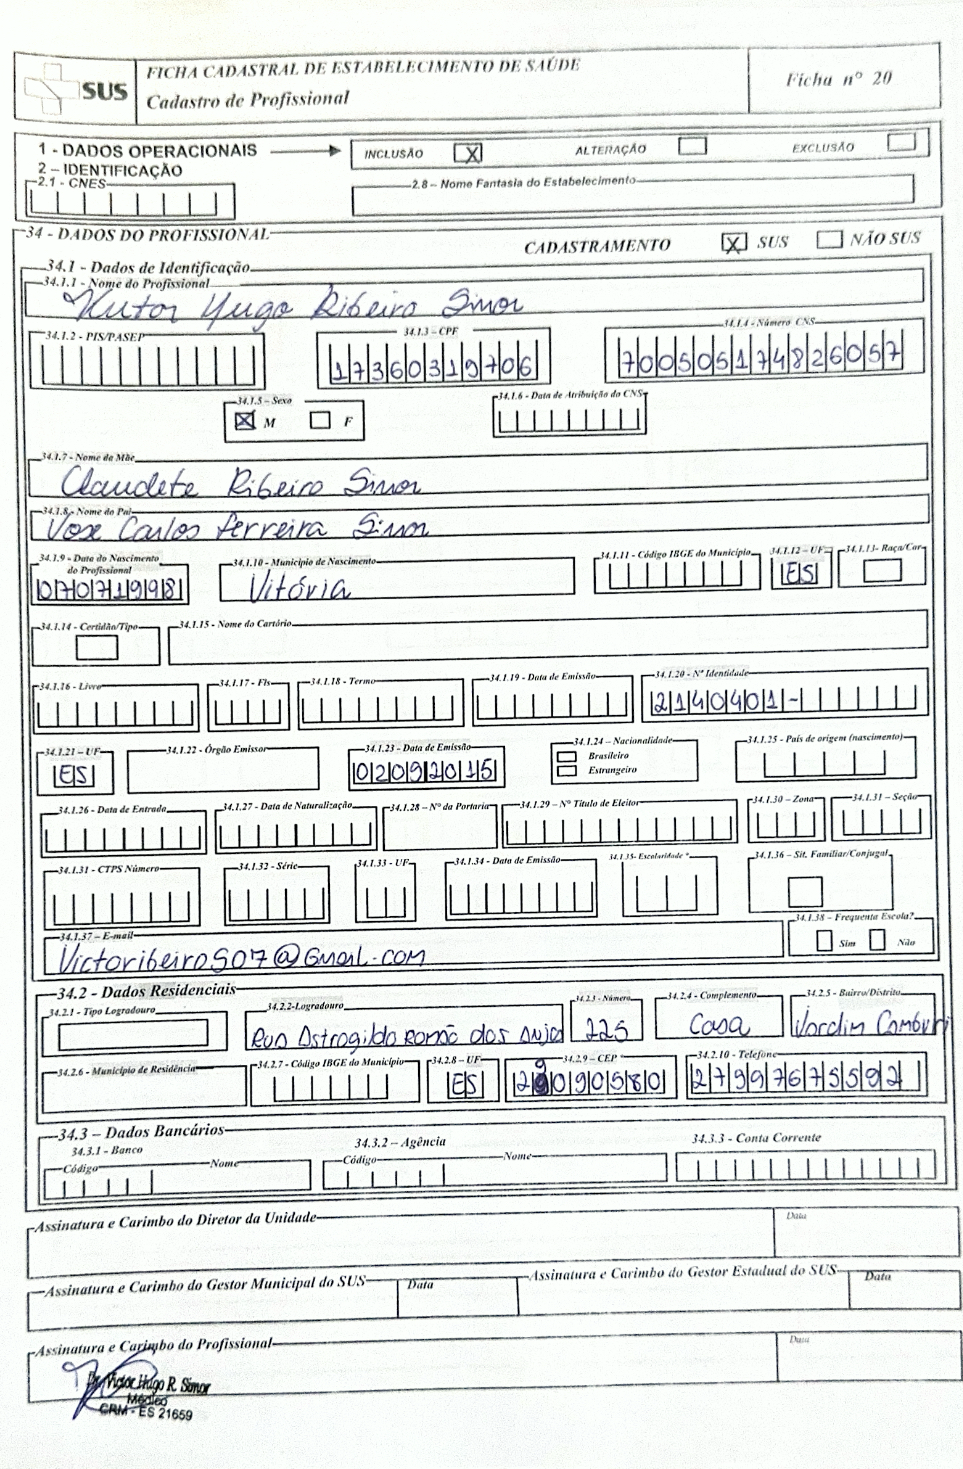 SUS
FICHA CADASTRAL DE ESTABELECIMENTO DE SAÚDE
Cadastro de Profissional
Ficha nº 20
1 - DADOS OPERACIONAIS
INCLUSÃO X ALTERAÇÃO EXCLUSÃO
2 – IDENTIFICAÇÃO
2.1 - CNES
2.8 – Nome Fantasia do Estabelecimento
34 - DADOS DO PROFISSIONAL
CADASTRAMENTO X SUS NÃO SUS
34.1 - Dados de Identificação
34.1.1 - Nome do Profissional
Victor Hugo Ribeiro Simor
34.1.2 - PIS/PASEP 34.1.3 – CPF 34.1.4 - Número CNS
17360319706 700505174826057
34.1.5 – Sexo 34.1.6 - Data de Atribuição do CNS
X M F
34.1.7 - Nome da Mãe
Claudete Ribeiro Simor
34.1.8 - Nome do Pai
Jose Carlos Ferreira Simor
34.1.9 - Data do Nascimento do Profissional 34.1.10 - Município de Nascimento 34.1.11 - Código IBGE do Município 34.1.12 – UF 34.1.13- Raça/Cor
07071998 Vitória ES
34.1.14 - Certidão/Tipo 34.1.15 - Nome do Cartório
34.1.16 - Livro 34.1.17 - Fls 34.1.18 - Termo 34.1.19 - Data de Emissão 34.1.20 - Nº Identidade
2140401-
34.1.21 - UF 34.1.22 - Órgão Emissor 34.1.23 - Data de Emissão 34.1.24 – Nacionalidade 34.1.25 - País de origem (nascimento)
ES 02092015 Brasileiro
Estrangeiro
34.1.26 - Data de Entrada 34.1.27 - Data de Naturalização 34.1.28 - Nº da Portaria 34.1.29 – Nº Título de Eleitor 34.1.30 – Zona 34.1.31 - Seção
34.1.31 - CTPS Número 34.1.32 - Série 34.1.33 - UF 34.1.34 - Data de Emissão 34.1.35- Escolaridade * 34.1.36 – Sit. Familiar/Conjugal
34.1.37 – E-mail 34.1.38 – Frequenta Escola?
Victoribeiro907@Gmail.com Sim Não
34.2 - Dados Residenciais
34.2.1 - Tipo Logradouro 34.2.2-Logradouro 34.2.3 - Número 34.2.4 - Complemento 34.2.5 - Bairro/Distrito
Rua Astrogildo Romão dos Anjos 225 Casa Jardim Camburi
34.2.6 - Município de Residência 34.2.7 - Código IBGE do Município 34.2.8 - UF 34.2.9 – CEP 34.2.10 - Telefone
ES 29090580 27997675592
34.3 – Dados Bancários
34.3.1 - Banco 34.3.2 – Agência 34.3.3 - Conta Corrente
Código Nome Código Nome
Assinatura e Carimbo do Diretor da Unidade Data
Assinatura e Carimbo do Gestor Municipal do SUS Data Assinatura e Carimbo do Gestor Estadual do SUS Data
Assinatura e Carimbo do Profissional Data
Dr. Victor Hugo R. Simor
Médico
CRM - ES 21659